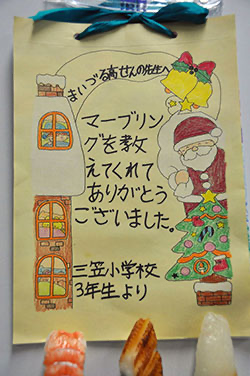 まいづる高せんの先生へ
マーブリン
グを教
えてくれて
ありがとう
ございました。
三笠小学校
3年生より